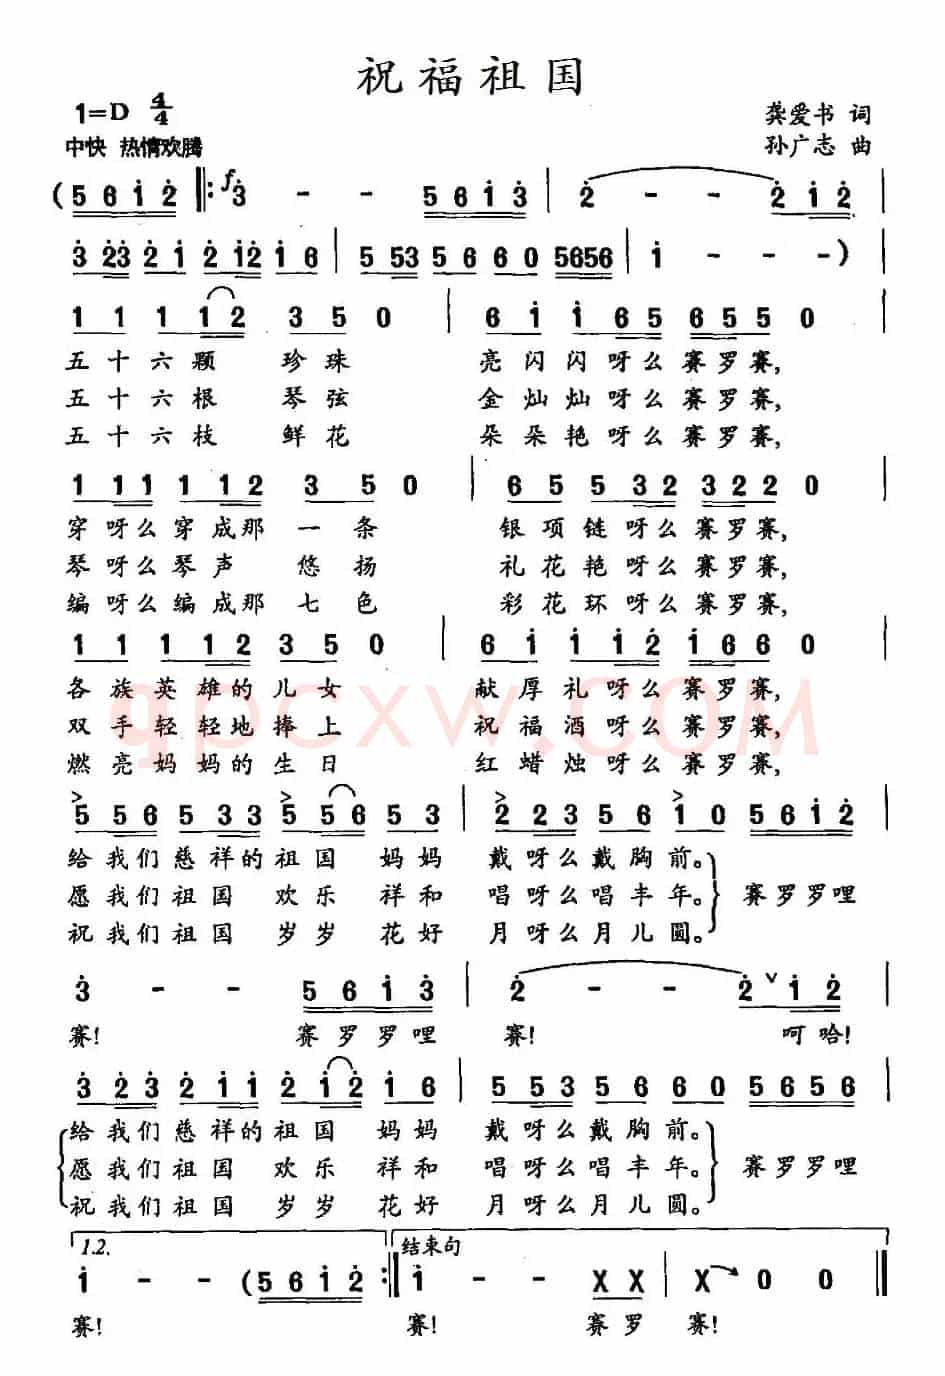 祝福祖国
1=D 4/4
龚爱书 词
中快 热情欢腾
孙广志 曲
( 5 6 1 2 |: f 3 - - 5 6 1 3 | 2 - - 2 1 2 |
3 2 3 2 1 2 1 2 1 6 | 5 5 3 5 6 6 0 5 6 5 6 | 1 - - - ) |
1 1 1 1 2 3 5 0 | 6 1 1 6 5 6 5 5 0 |
五十六颗 珍珠 亮闪闪呀么赛罗赛,
五十六根 琴弦 金灿灿呀么赛罗赛,
五十六枝 鲜花 朵朵艳呀么赛罗赛,
1 1 1 1 1 2 3 5 0 | 6 5 5 3 2 3 2 2 0 |
穿呀么穿成那一条 银项链呀么赛罗赛,
琴呀么琴声 悠扬 礼花艳呀么赛罗赛,
编呀么编成那七色 彩花环呀么赛罗赛,
1 1 1 1 2 3 5 0 | 6 1 1 1 2 1 6 6 0 |
各族英雄的儿女 献厚礼呀么赛罗赛,
双手轻轻地捧上 祝福酒呀么赛罗赛,
燃亮妈妈的生日 红蜡烛呀么赛罗赛,
gpcxw.COM
> > > >
5 5 6 5 3 3 5 5 6 5 3 | 2 2 3 5 6 1 0 5 6 1 2 |
给我们慈祥的祖国 妈妈 戴呀么戴胸前。
愿我们祖国 欢乐 祥和 唱呀么唱丰年。 赛罗罗哩
祝我们祖国 岁岁 花好 月呀么月儿圆。
3 - - 5 6 1 3 | 2 - - 2 ∨ 1 2 |
赛! 赛罗罗哩 赛! 呵哈!
3 2 3 2 1 1 2 1 2 1 6 | 5 5 3 5 6 6 0 5 6 5 6 |
给我们慈祥的祖国 妈妈 戴呀么戴胸前。
愿我们祖国 欢乐 祥和 唱呀么唱丰年。 赛罗罗哩
祝我们祖国 岁岁 花好 月呀么月儿圆。
1.2. 结束句
1 - - ( 5 6 1 2 :| 1 - - X X | X 0 0 ||
赛! 赛! 赛罗 赛!